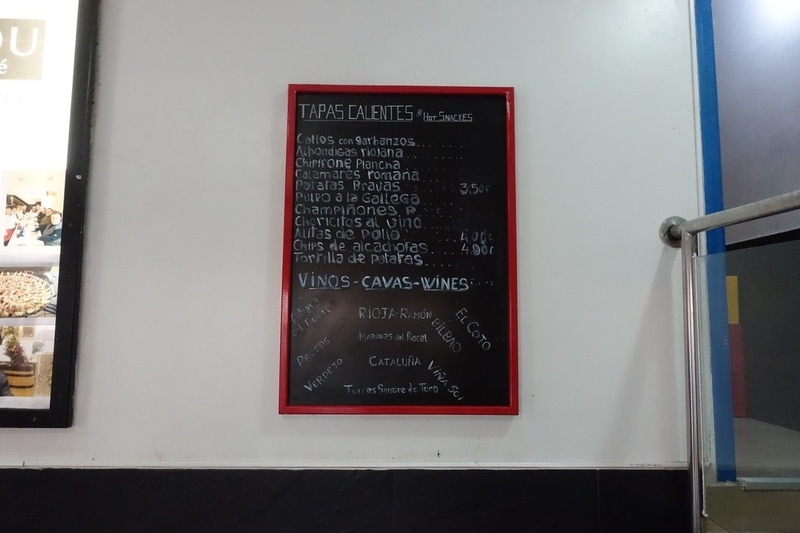 OU
é
TAPAS CALIENTES * HOT SNACKES
Callos con garbanzos
Albondigas riojana
Chipirone Plancha
Calamares romana
Patatas Bravas 3,50€
Pulpo a la Gallega
Champiñones P
Choricitos al vino
Alitas de Pollo 4,00€
Chips de alcachofas 4.00€
Torrilla de patatas
VINOS-CAVAS-WINES
RIOJA-RAMÓN BILBAO
EL COTO
MARQUES del Riscal
VERDEJO
CATALUÑA
VIÑA SOL
Torres Sangre de Toro